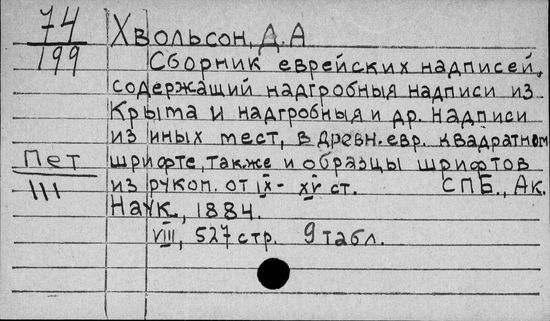 74
199
Хвольсон, Д.А
Сборник еврейских надписей,
содержащий надгробныя надписи из
Крыма и надгробныя и др. надписи
из иных мест, в древн. евр. квадратном
Пет
шрифте, также и образцы шрифтов
III
из рукоп. от IX - XV ст. СПБ., Ак.
Наук, 1884.
VIII, 527 стр. 9 табл.